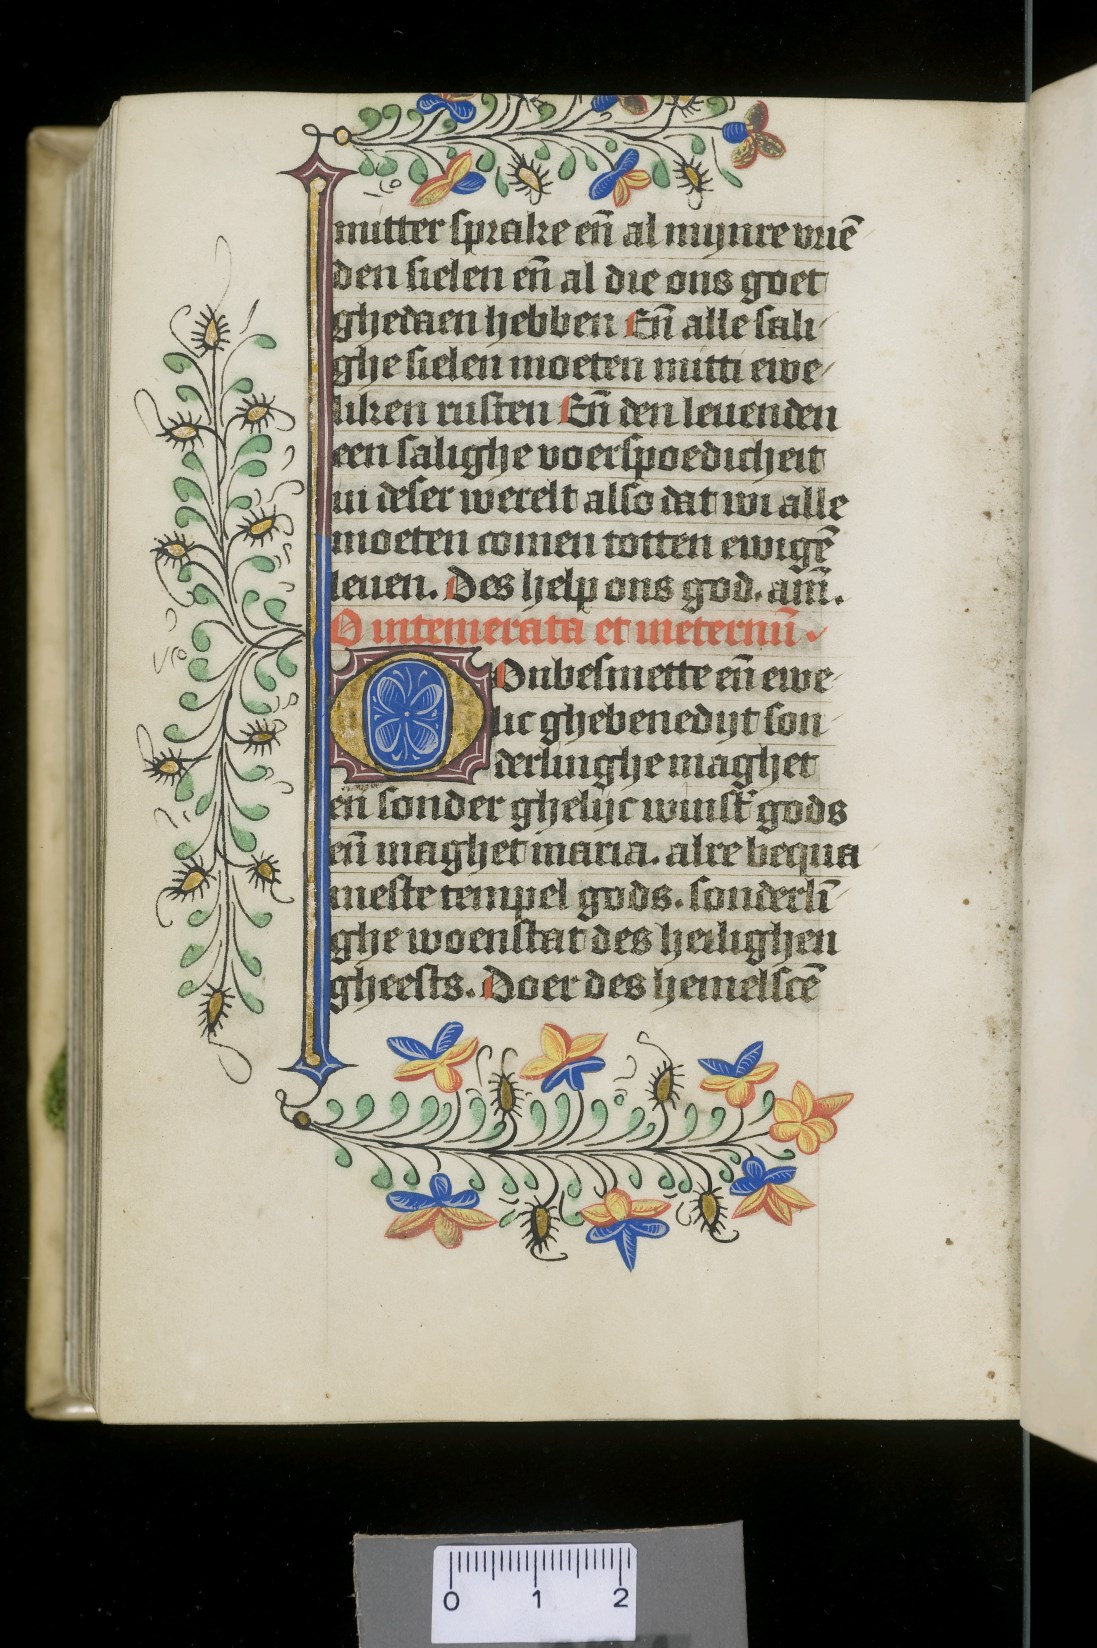 mitter sprake en̄ al mijnre vriē
den sielen en̄ al die ons goet
ghedaen hebben En̄ alle sali
ghe sielen moeten mitti ewe
liken rusten En̄ den leuenden
een salighe voerspoedicheit
in deser werelt also dat wi alle
moeten comen totten ewigē
leuen. Des help ons god. am̄.
O intemerata et ineternū.
O Onbesmette en̄ ewe
lic ghebenedijt son
derlinghe maghet
en̄ sonder ghelijc winst' gods
en̄ maghet maria. alre bequa
meste tempel gods. sonderlī
ghe woenstat des heilighen
gheests. Doer des hemelscē
0 1 2